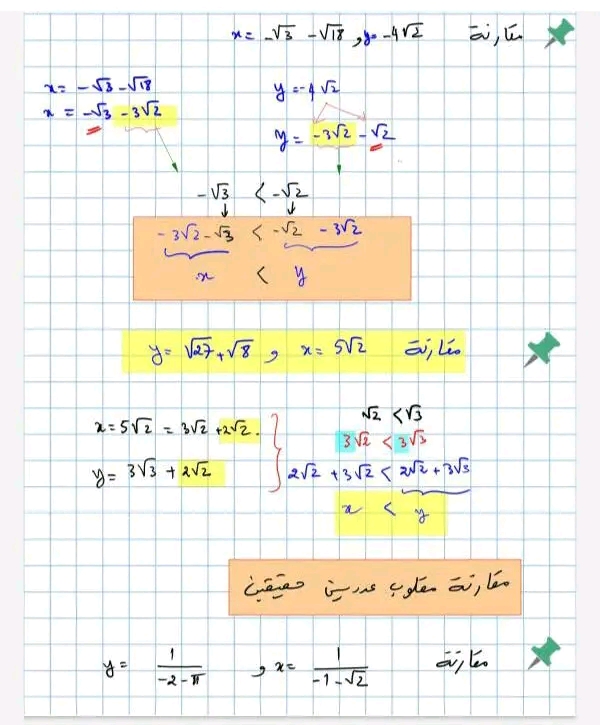 مقارنة x = -√3 - √18 , y = -4√2
x = -√3 - √18
x = -√3 - 3√2
y = -4√2
y = -3√2 - √2
-√3 < -√2
-3√2 - √3 < -√2 - 3√2
x < y
مقارنة x = 5√2 , y = √27 + √8
x = 5√2 = 3√2 + 2√2.
y = 3√3 + 2√2
√2 < √3
3√2 < 3√3
2√2 + 3√2 < 2√2 + 3√3
x < y
مقارنة مقلوب عددين حقيقين
مقارنة x = 1/(-1-√2) , y = 1/(-2-π)